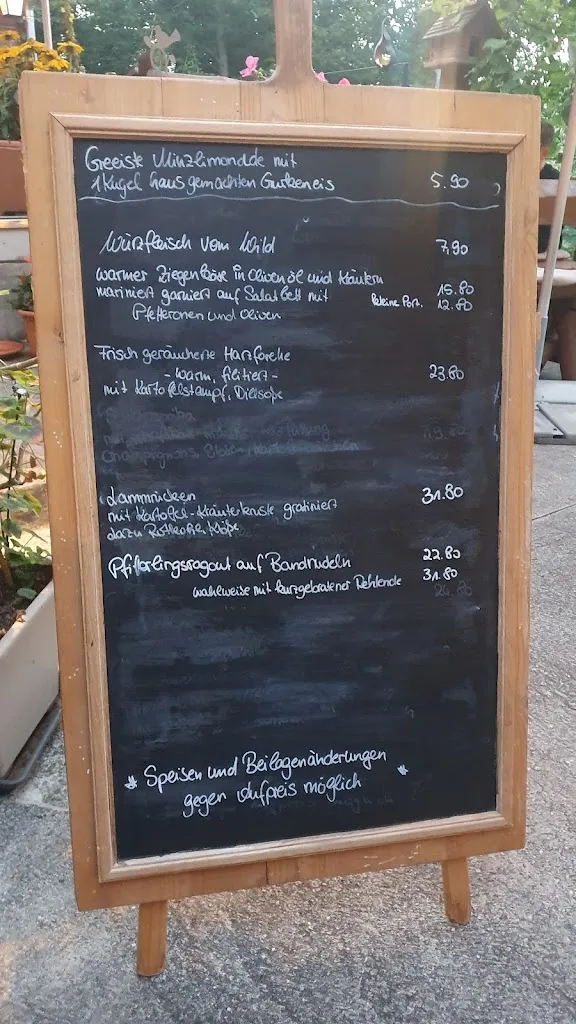 Geeiste Minzlimondde mit
1 Kugel hausgemachten Gurkeneis 5.90
Würzfleisch vom Wild 7,90
warmer Ziegenkäse in Olivenöl und Kräutern
mariniert garniert auf Salatbett mit 15.80
kleine Port. 12.80
Pfefferonen und Oliven
Frisch geräucherte Harzforelle
- warm, filitiert - 23.80
mit Kartoffelstampf, Dillsoße
Champignons,
Lammrücken 31.80
mit Kartoffel-Kräuterkruste gratiniert
dazu Rotkohl, Klöße
Pfifferlingsragout auf Bandnudeln 22.80
wahlweise mit kurzgebratener Rehlende 31.80
Speisen und Beilagenänderungen
gegen Aufpreis möglich